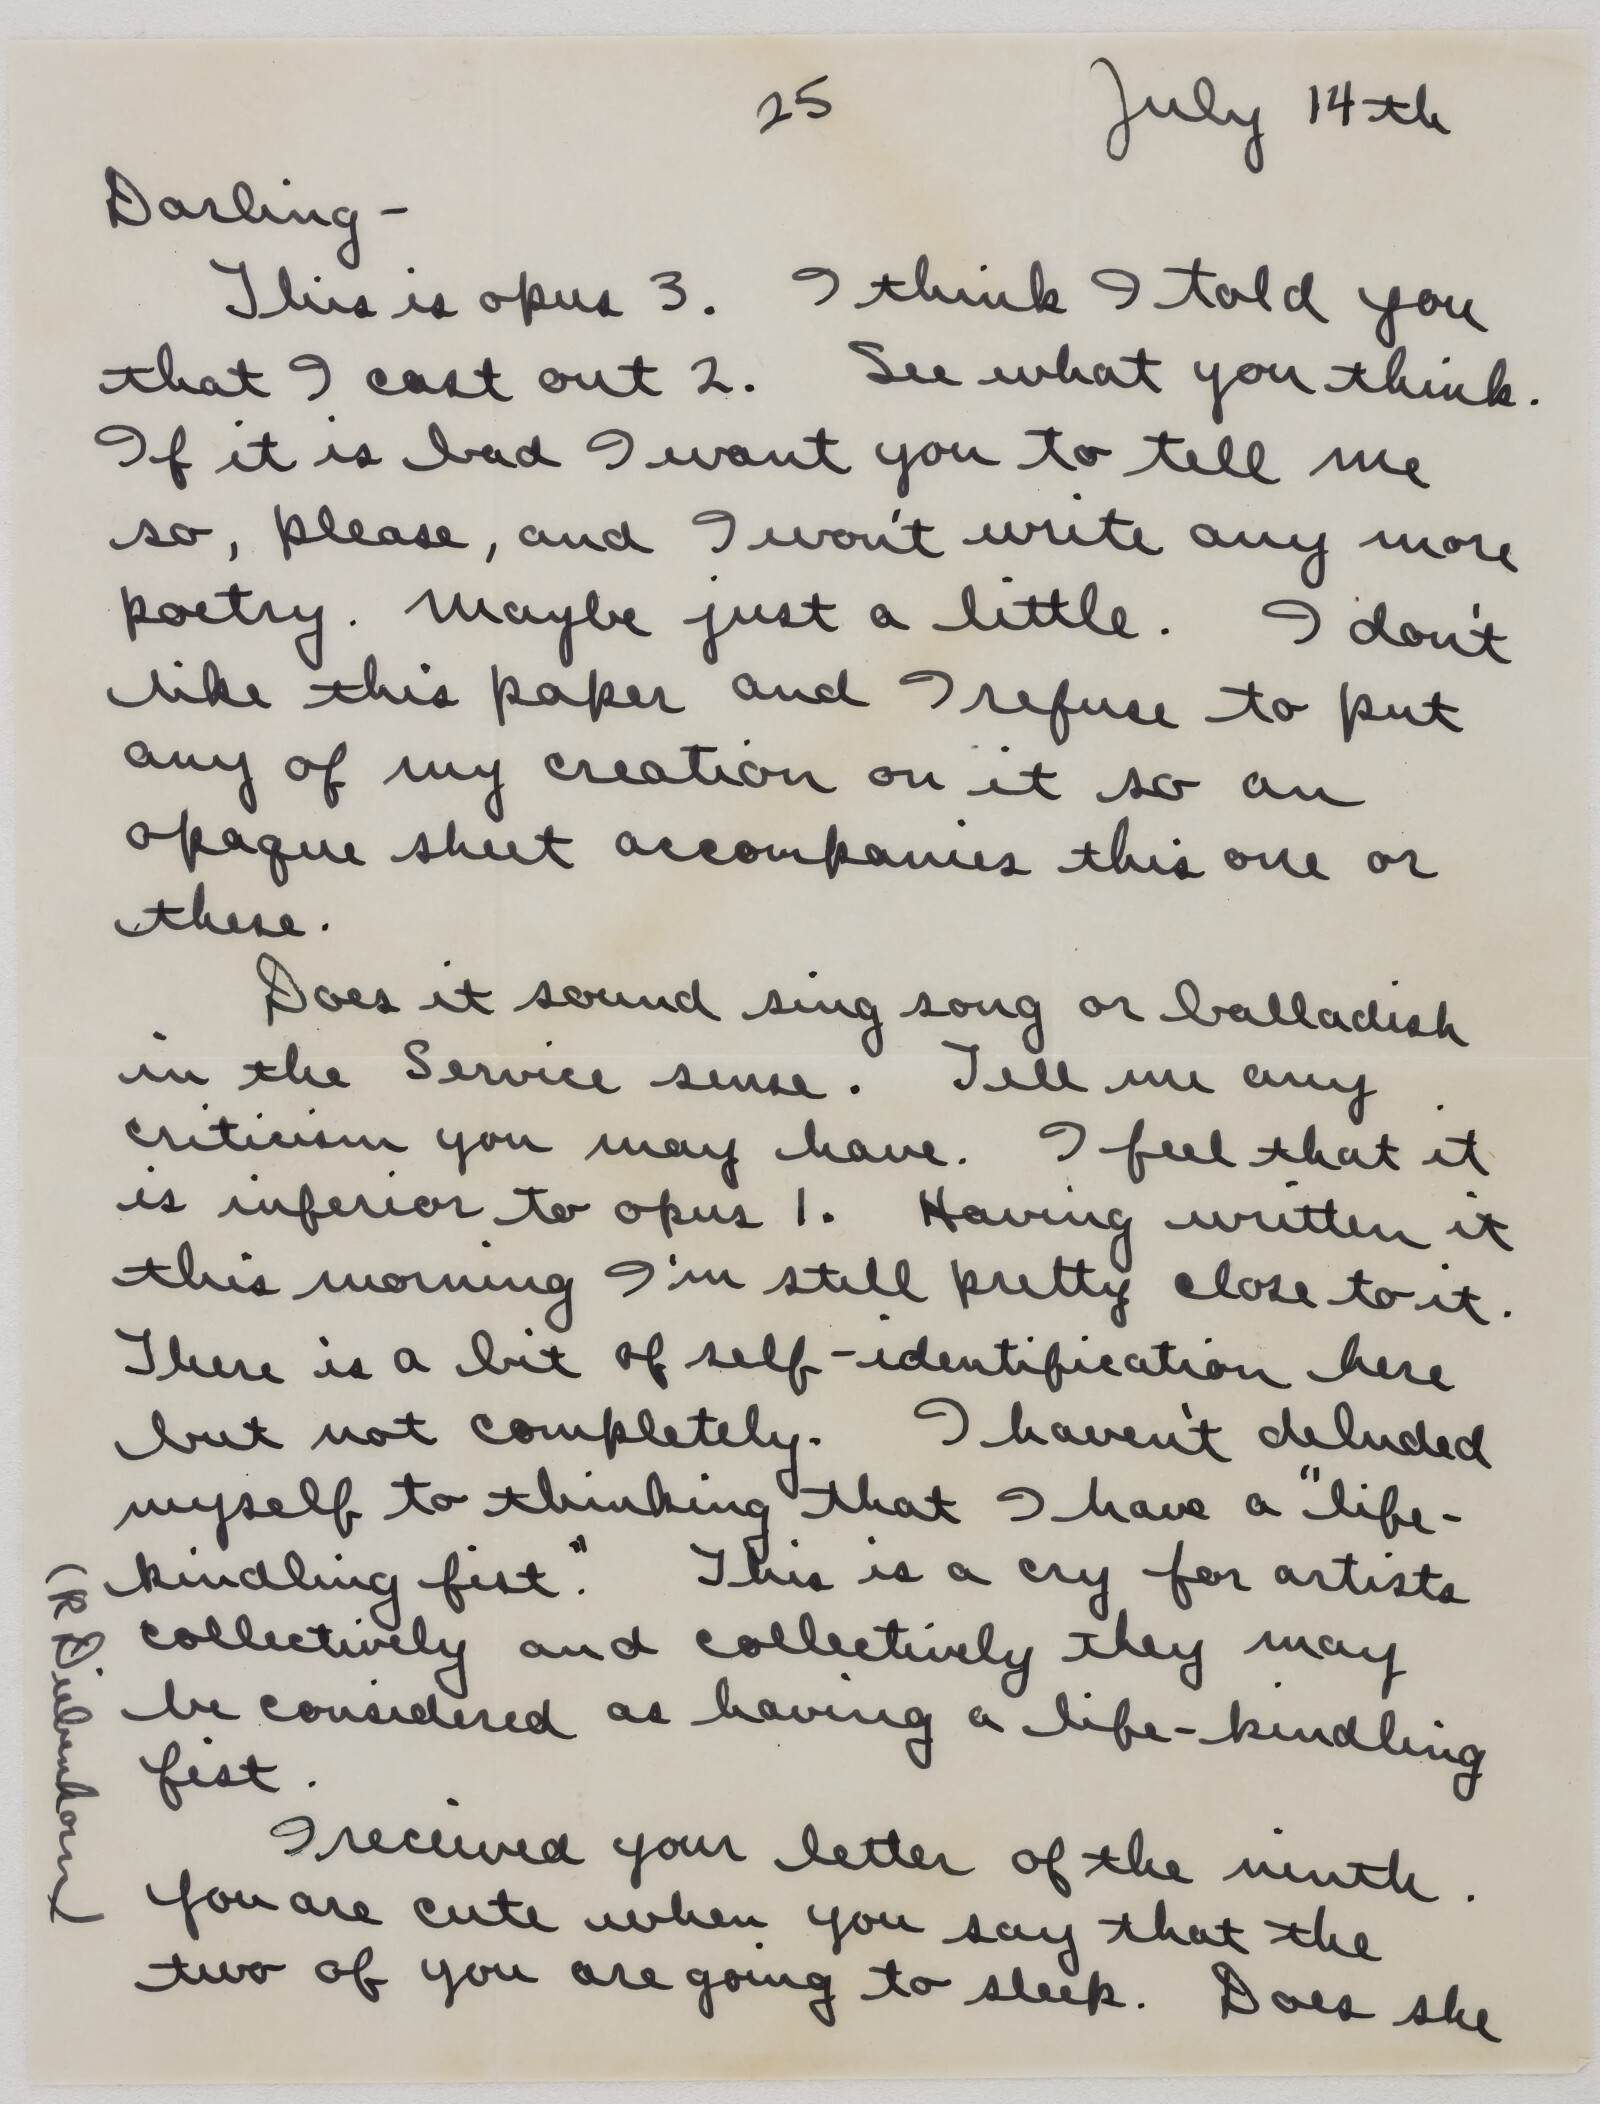 25 July 14th
Darling -
This is opus 3. I think I told you
that I cast out 2. See what you think.
If it is bad I want you to tell me
so, please, and I won't write any more
poetry. Maybe just a little. I don't
like this paper and I refuse to put
any of my creation on it so an
opaque sheet accompanies this one or
these.
Does it sound sing song or balladish
in the Service sense. Tell me any
criticism you may have. I feel that it
is inferior to opus 1. Having written it
this morning I'm still pretty close to it.
There is a bit of self-identification here
but not completely. I haven't deluded
myself to thinking that I have a "life-
kindling fist." This is a cry for artists
collectively and collectively they may
be considered as having a life-kindling
fist.
I received your letter of the ninth.
You are cute when you say that the
two of you are going to sleep. Does she
(R Diebenkorn)